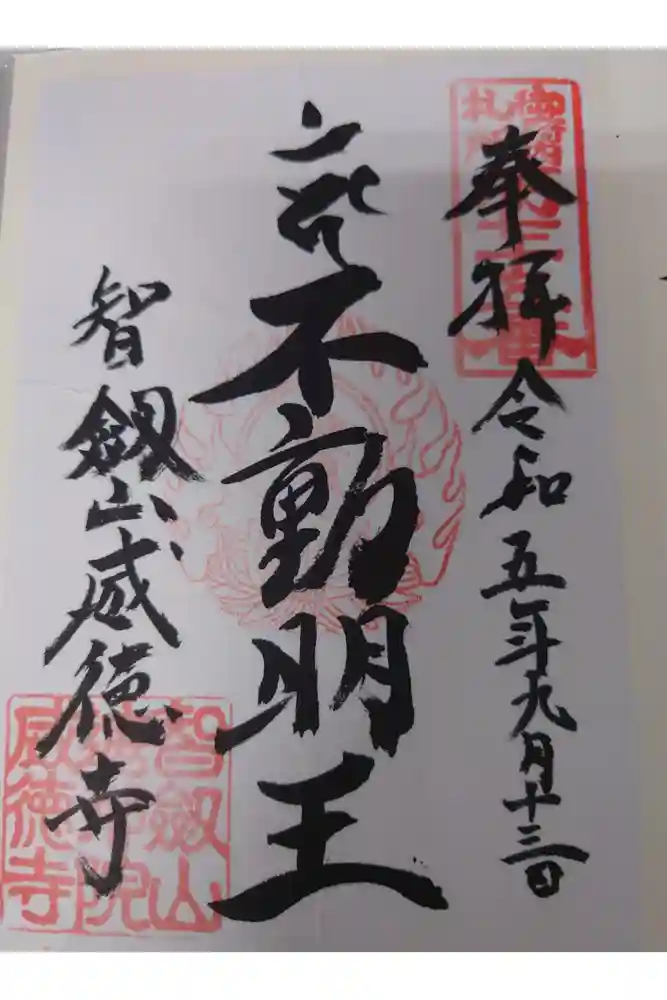 奉拝
令和五年九月十三日
不動明王
智劔山威徳寺
智劔山
院
威徳寺